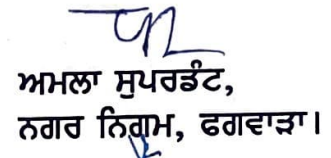 ਅਮਲਾ ਸੁਪਰਡੰਟ,
ਨਗਰ ਨਿਗਮ, ਫਗਵਾੜਾ।